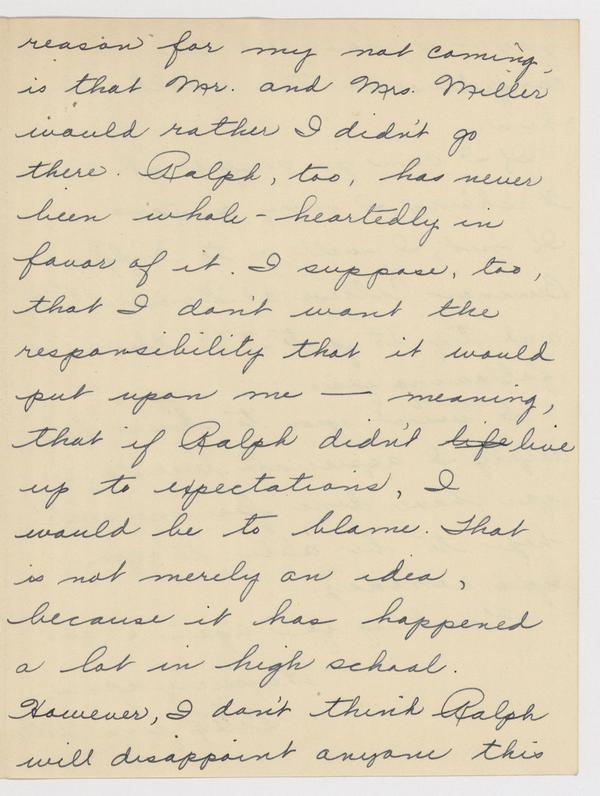 reason for my not coming,
is that Mr. and Mrs. Miller
would rather I didn't go
there. Ralph, too, has never
been whole-heartedly in
favor of it. I suppose, too,
that I don't want the
responsibility that it would
put upon me — meaning,
that if Ralph didn't life live
up to expectations, I
would be to blame. That
is not merely an idea,
because it has happened
a lot in high school.
However, I don't think Ralph
will disappoint anyone this